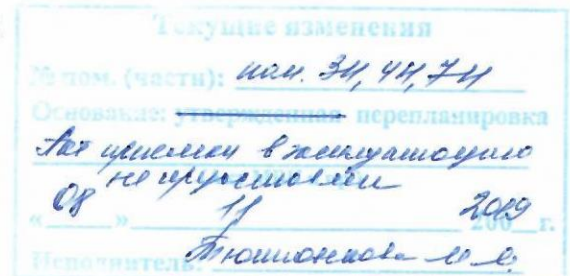 Текущие изменения
№ пом. (части): пом. 3Н, 4Н, 7Н
Основание: утвержденная перепланировка
Акт приемки в эксплуатацию
не предъявлен
« 08 » 11 2019 200 г.
Исполнитель: